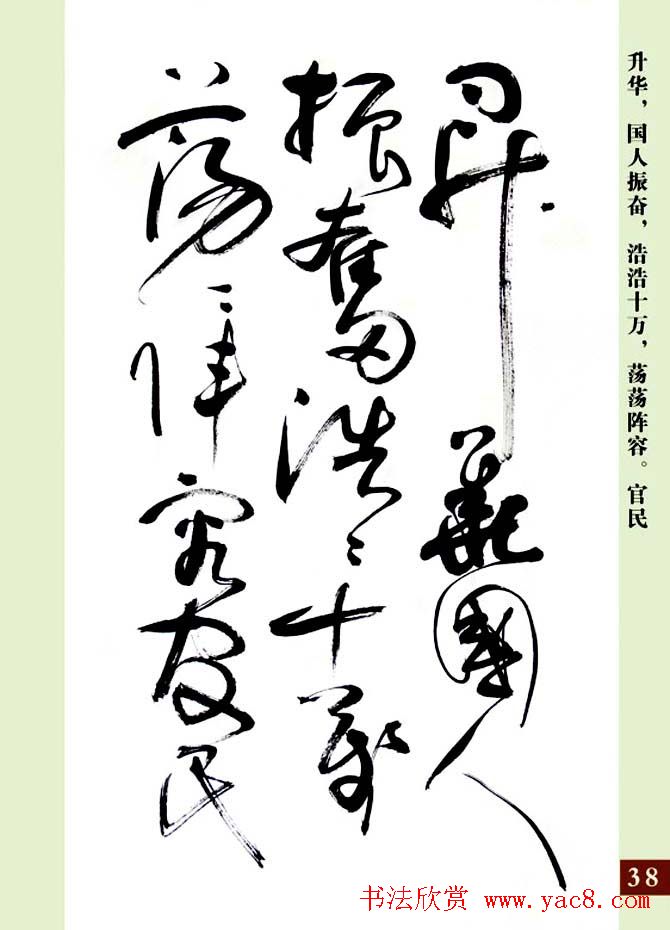 昇華國人
振奮浩〻十萬
蕩〻陣容官民
升华，国人振奋，浩浩十万，荡荡阵容。官民
38
书法欣赏 www.yac8.com